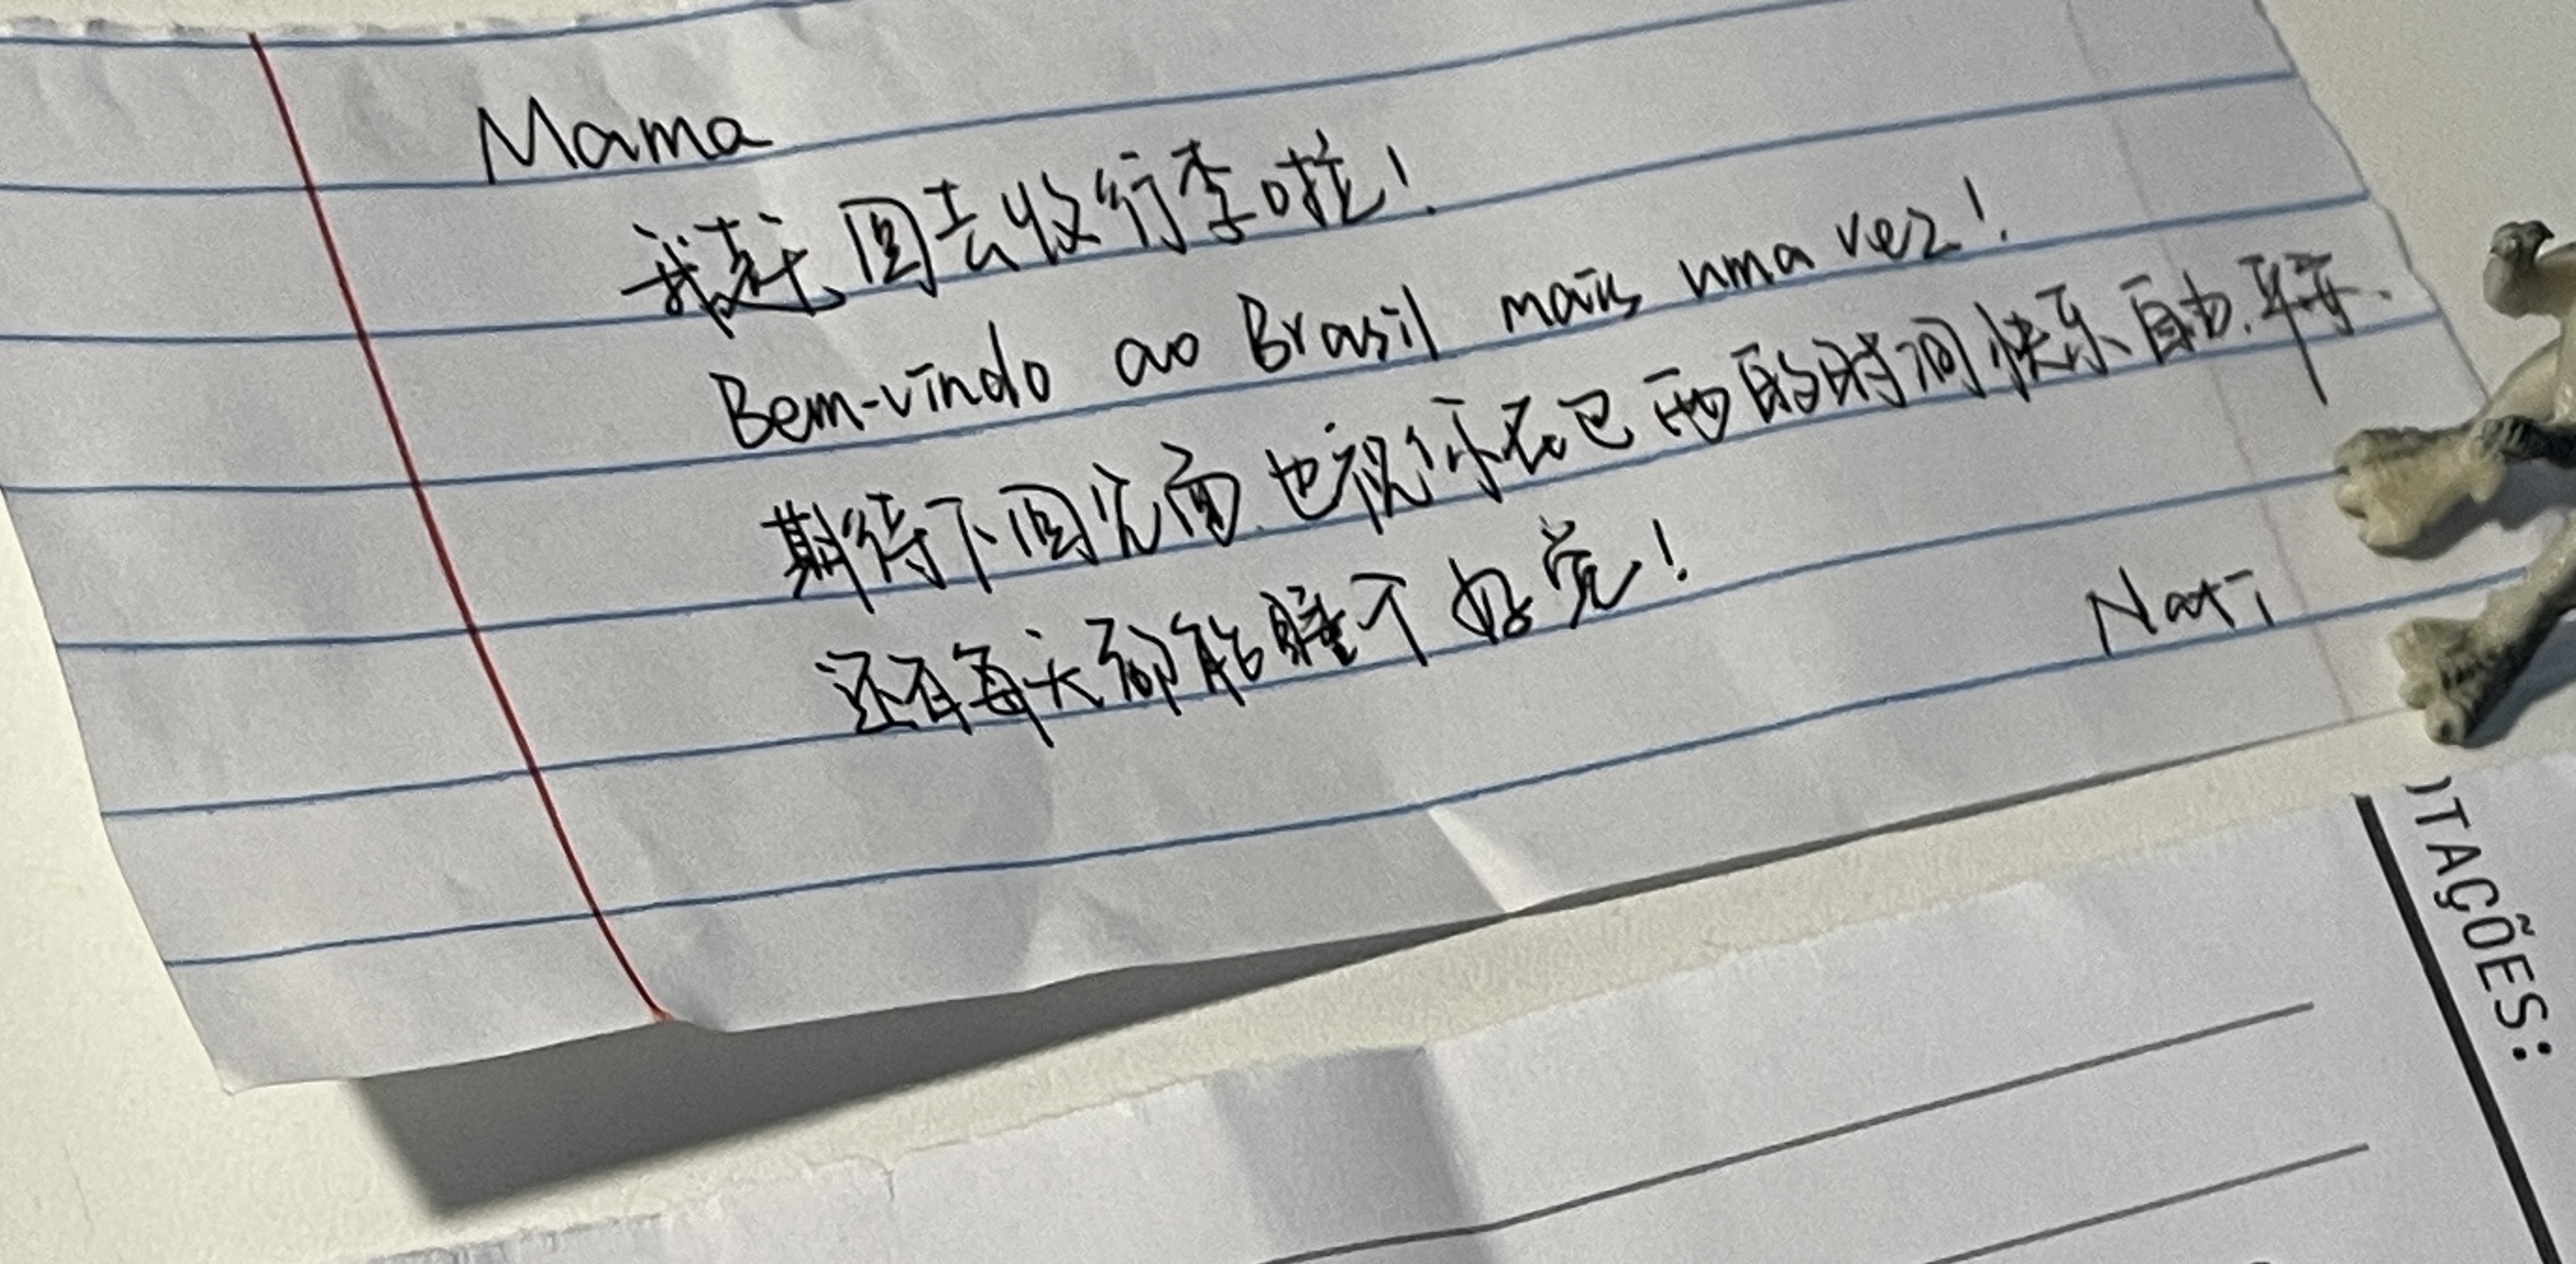 Mama
我赶回去收行李啦！
Bem-vindo ao Brasil mais uma vez!
期待下回见面.也祝你在巴西的时间快乐、自由.平安.
还有每天都能睡个好觉！
Nati
TAÇÕES: